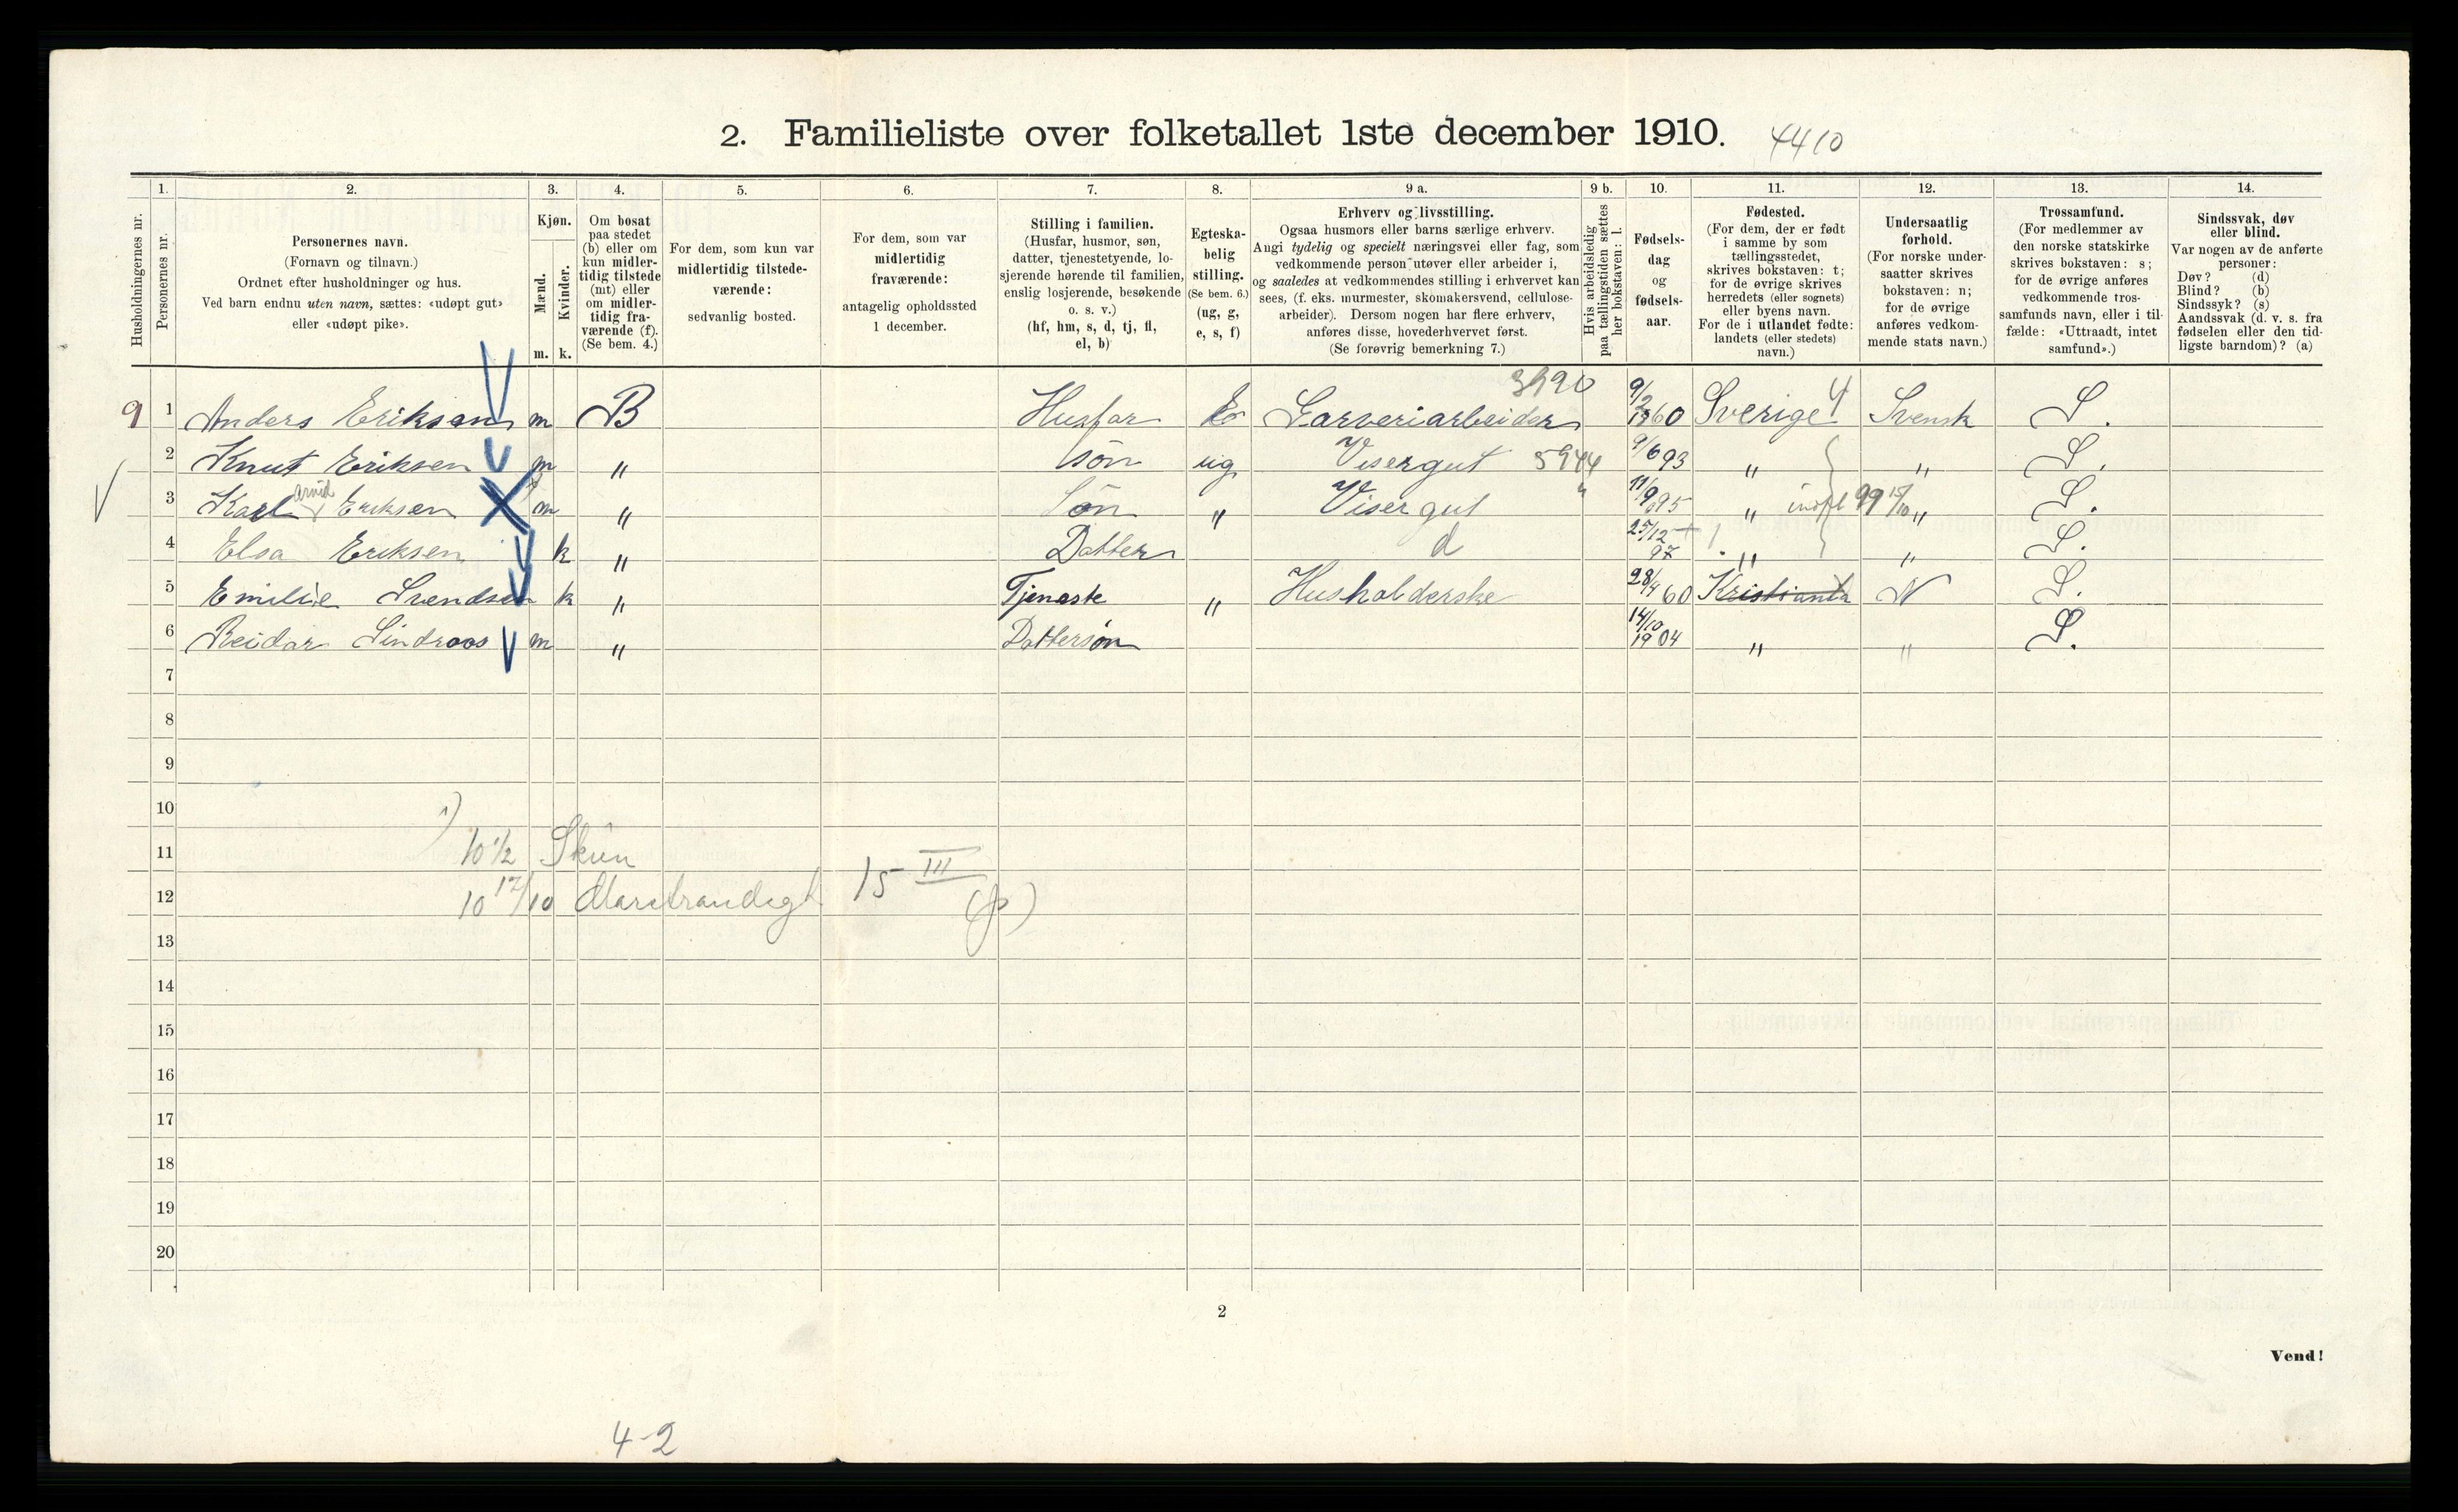 2. Familieliste over folketallet 1ste december 1910. 4410
Husholdningernes nr.
1. Personernes nr.
2. Personernes navn.
(Fornavn og tilnavn.)
Ordnet efter husholdninger og hus.
Ved barn endnu uten navn, sættes: «udøpt gut»
eller «udøpt pike».
3. Kjøn.
Mænd. Kvinder.
m. k.
4. Om bosat
paa stedet
(b) eller om
kun midler-
tidig tilstede
(mt) eller
om midler-
tidig fra-
værende (f).
(Se bem. 4.)
5. For dem, som kun var
midlertidig tilstede-
værende:
sedvanlig bosted.
6. For dem, som var
midlertidig
fraværende:
antagelig opholdssted
1 december.
7. Stilling i familien.
(Husfar, husmor, søn,
datter, tjenestetyende, lo-
sjerende hørende til familien,
enslig losjerende, besøkende
o. s. v.)
(hf, hm, s, d, tj, fl,
el, b)
8. Egteska-
belig
stilling.
(Se bem. 6.)
(ug, g,
e, s, f)
9 a. Erhverv og livsstilling.
Ogsaa husmors eller barns særlige erhverv.
Angi tydelig og specielt næringsvei eller fag, som
vedkommende person utøver eller arbeider i,
og saaledes at vedkommendes stilling i erhvervet kan
sees, (f. eks. murmester, skomakersvend, cellulose-
arbeider). Dersom nogen har flere erhverv,
anføres disse, hovederhvervet først.
(Se forøvrig bemerkning 7.)
9 b. Hvis arbeidsledig
paa tællingstiden sættes
her bokstaven: l.
10. Fødsels-
dag
og
fødsels-
aar.
11. Fødested.
(For dem, der er født
i samme by som
tællingsstedet,
skrives bokstaven: t;
for de øvrige skrives
herredets (eller sognets)
eller byens navn.
For de i utlandet fødte:
landets (eller stedets)
navn.)
12. Undersaatlig
forhold.
(For norske under-
saatter skrives
bokstaven: n;
for de øvrige
anføres vedkom-
mende stats navn.)
13. Trossamfund.
(For medlemmer av
den norske statskirke
skrives bokstaven: s;
for de øvrige anføres
vedkommende tros-
samfunds navn, eller i til-
fælde: «Uttraadt, intet
samfund».)
14. Sindssvak, døv
eller blind.
Var nogen av de anførte
personer:
Døv? (d)
Blind? (b)
Sindssyk? (s)
Aandssvak (d. v. s. fra
fødselen eller den tid-
ligste barndom)? (a)
9 1 Anders Eriksen m B Husfar E Garveriarbeider 9/2 1860 Sverige 4 Svensk S.
2 Knut Eriksen m " søn ug Visergut 5944 9/6 93 " " S.
3 Karl Arvid Eriksen m " Søn " Visergut 11/9 95 " indfl 99 15/10 " S.
4 Elsa Eriksen k " Datter d 25/12 97 " " S.
5 Emilie Svendsen k " Tjeneste " Husholderske 28/4 60 Kristiania N S.
6 Reidar Lindroos m " Dattersøn 14/10 1904 " " S.
7
8
9
10
1)
11 10 1/2 Skun
12 10 17/10 Marstrandsgt 15 III
(p)
13
14
15
16
17
18
19
20
2
Vend!
4-2